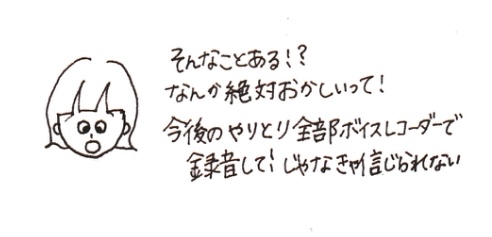 そんなことある!?
なんか絶対おかしいって!
今後のやりとり全部ボイスレコーダーで
録音して!じゃなきゃ信じられない